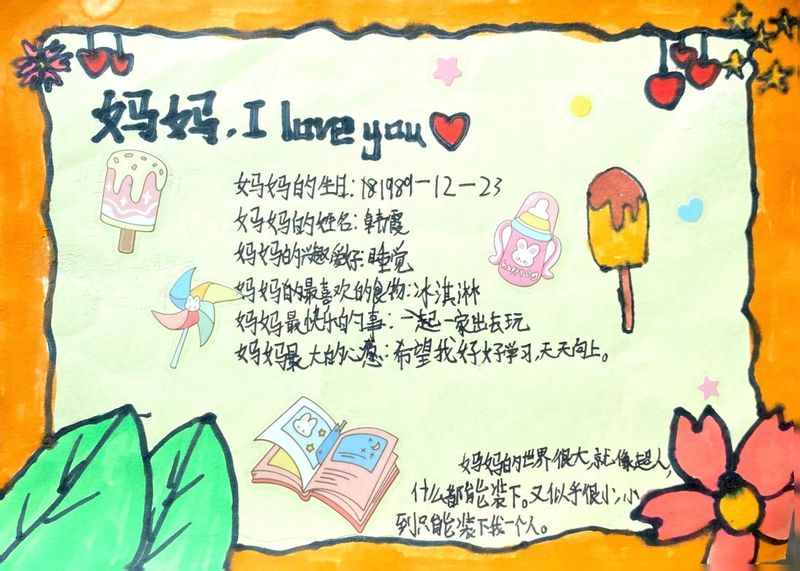 妈妈，I love you
妈妈的生日：181989-12-23
妈妈的姓名：韩霞
妈妈的兴趣爱好 睡觉
妈妈的最喜欢的食物：冰淇淋
妈妈最快乐的事：一起一家出去玩
妈妈最大的心愿：希望我好好学习，天天向上。
happy day
妈妈的世界很大，就像超人，
什么都能装下。又似乎很小，小
到只能装下我一个人。